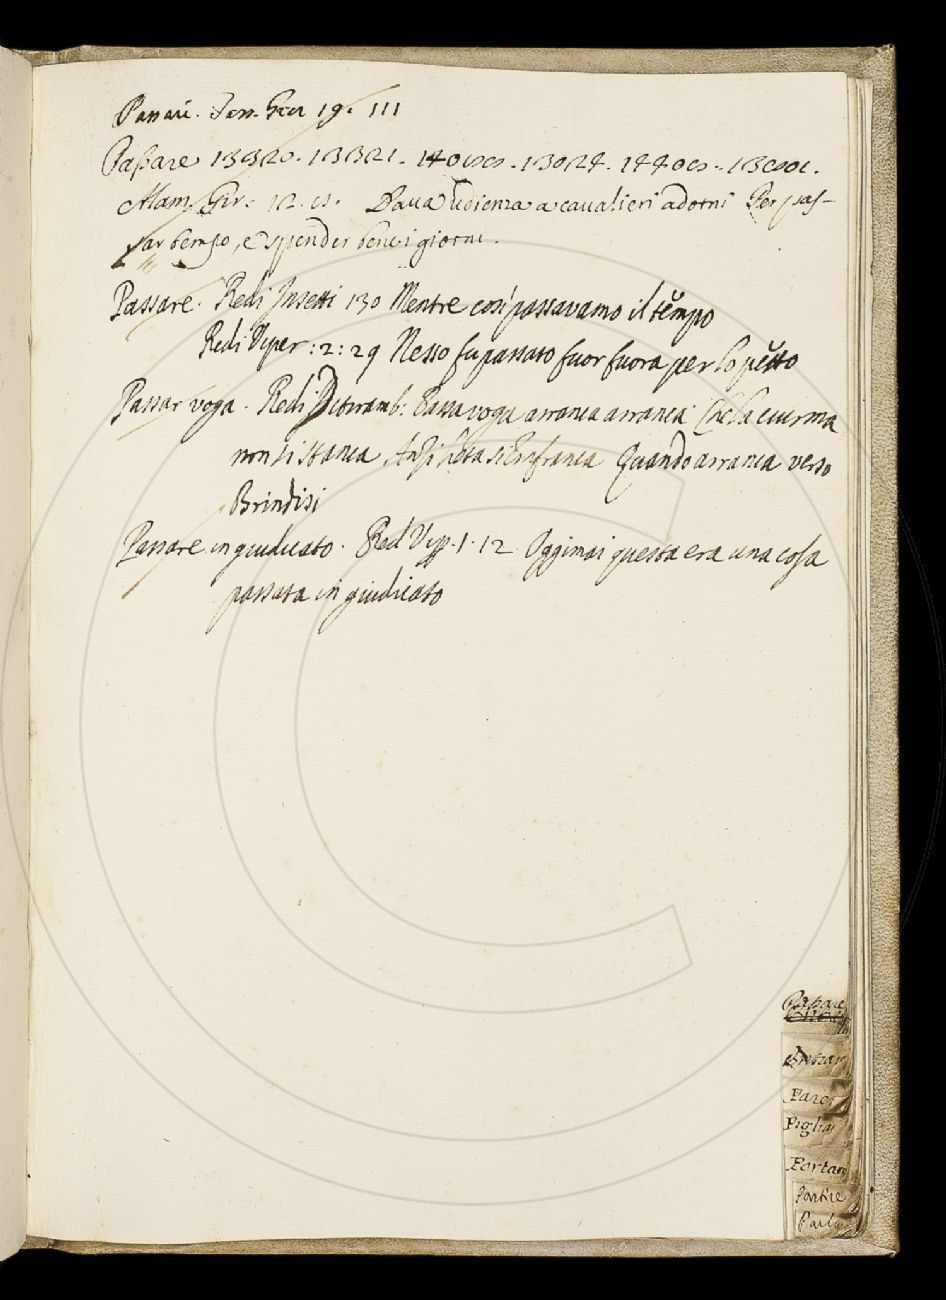 Passare. 19. 111
Passare 13320. 13321. 13024.
Alam. Gir. 12. Dava udienza a cavalieri adorni Per pas-
sar tempo, e spender bene i giorni.
Passare. Redi Insetti 130 Mentre così passavamo il tempo
Redi Viper: 2: 29 Nesso fu passato fuor fuora per lo petto
Passar voga. Redi Ditiramb: Passavoga arranca arranca Che la ciurma
non si stanca Anzi lieta si rinfranca Quando arranca verso
Brindisi
Passare in giudicato. Red Vip. 1. 12 Oggimai questa era una cosa
passata in giudicato
Passare
Entrar
Pare
Piglia
Portar
Partire
Parl